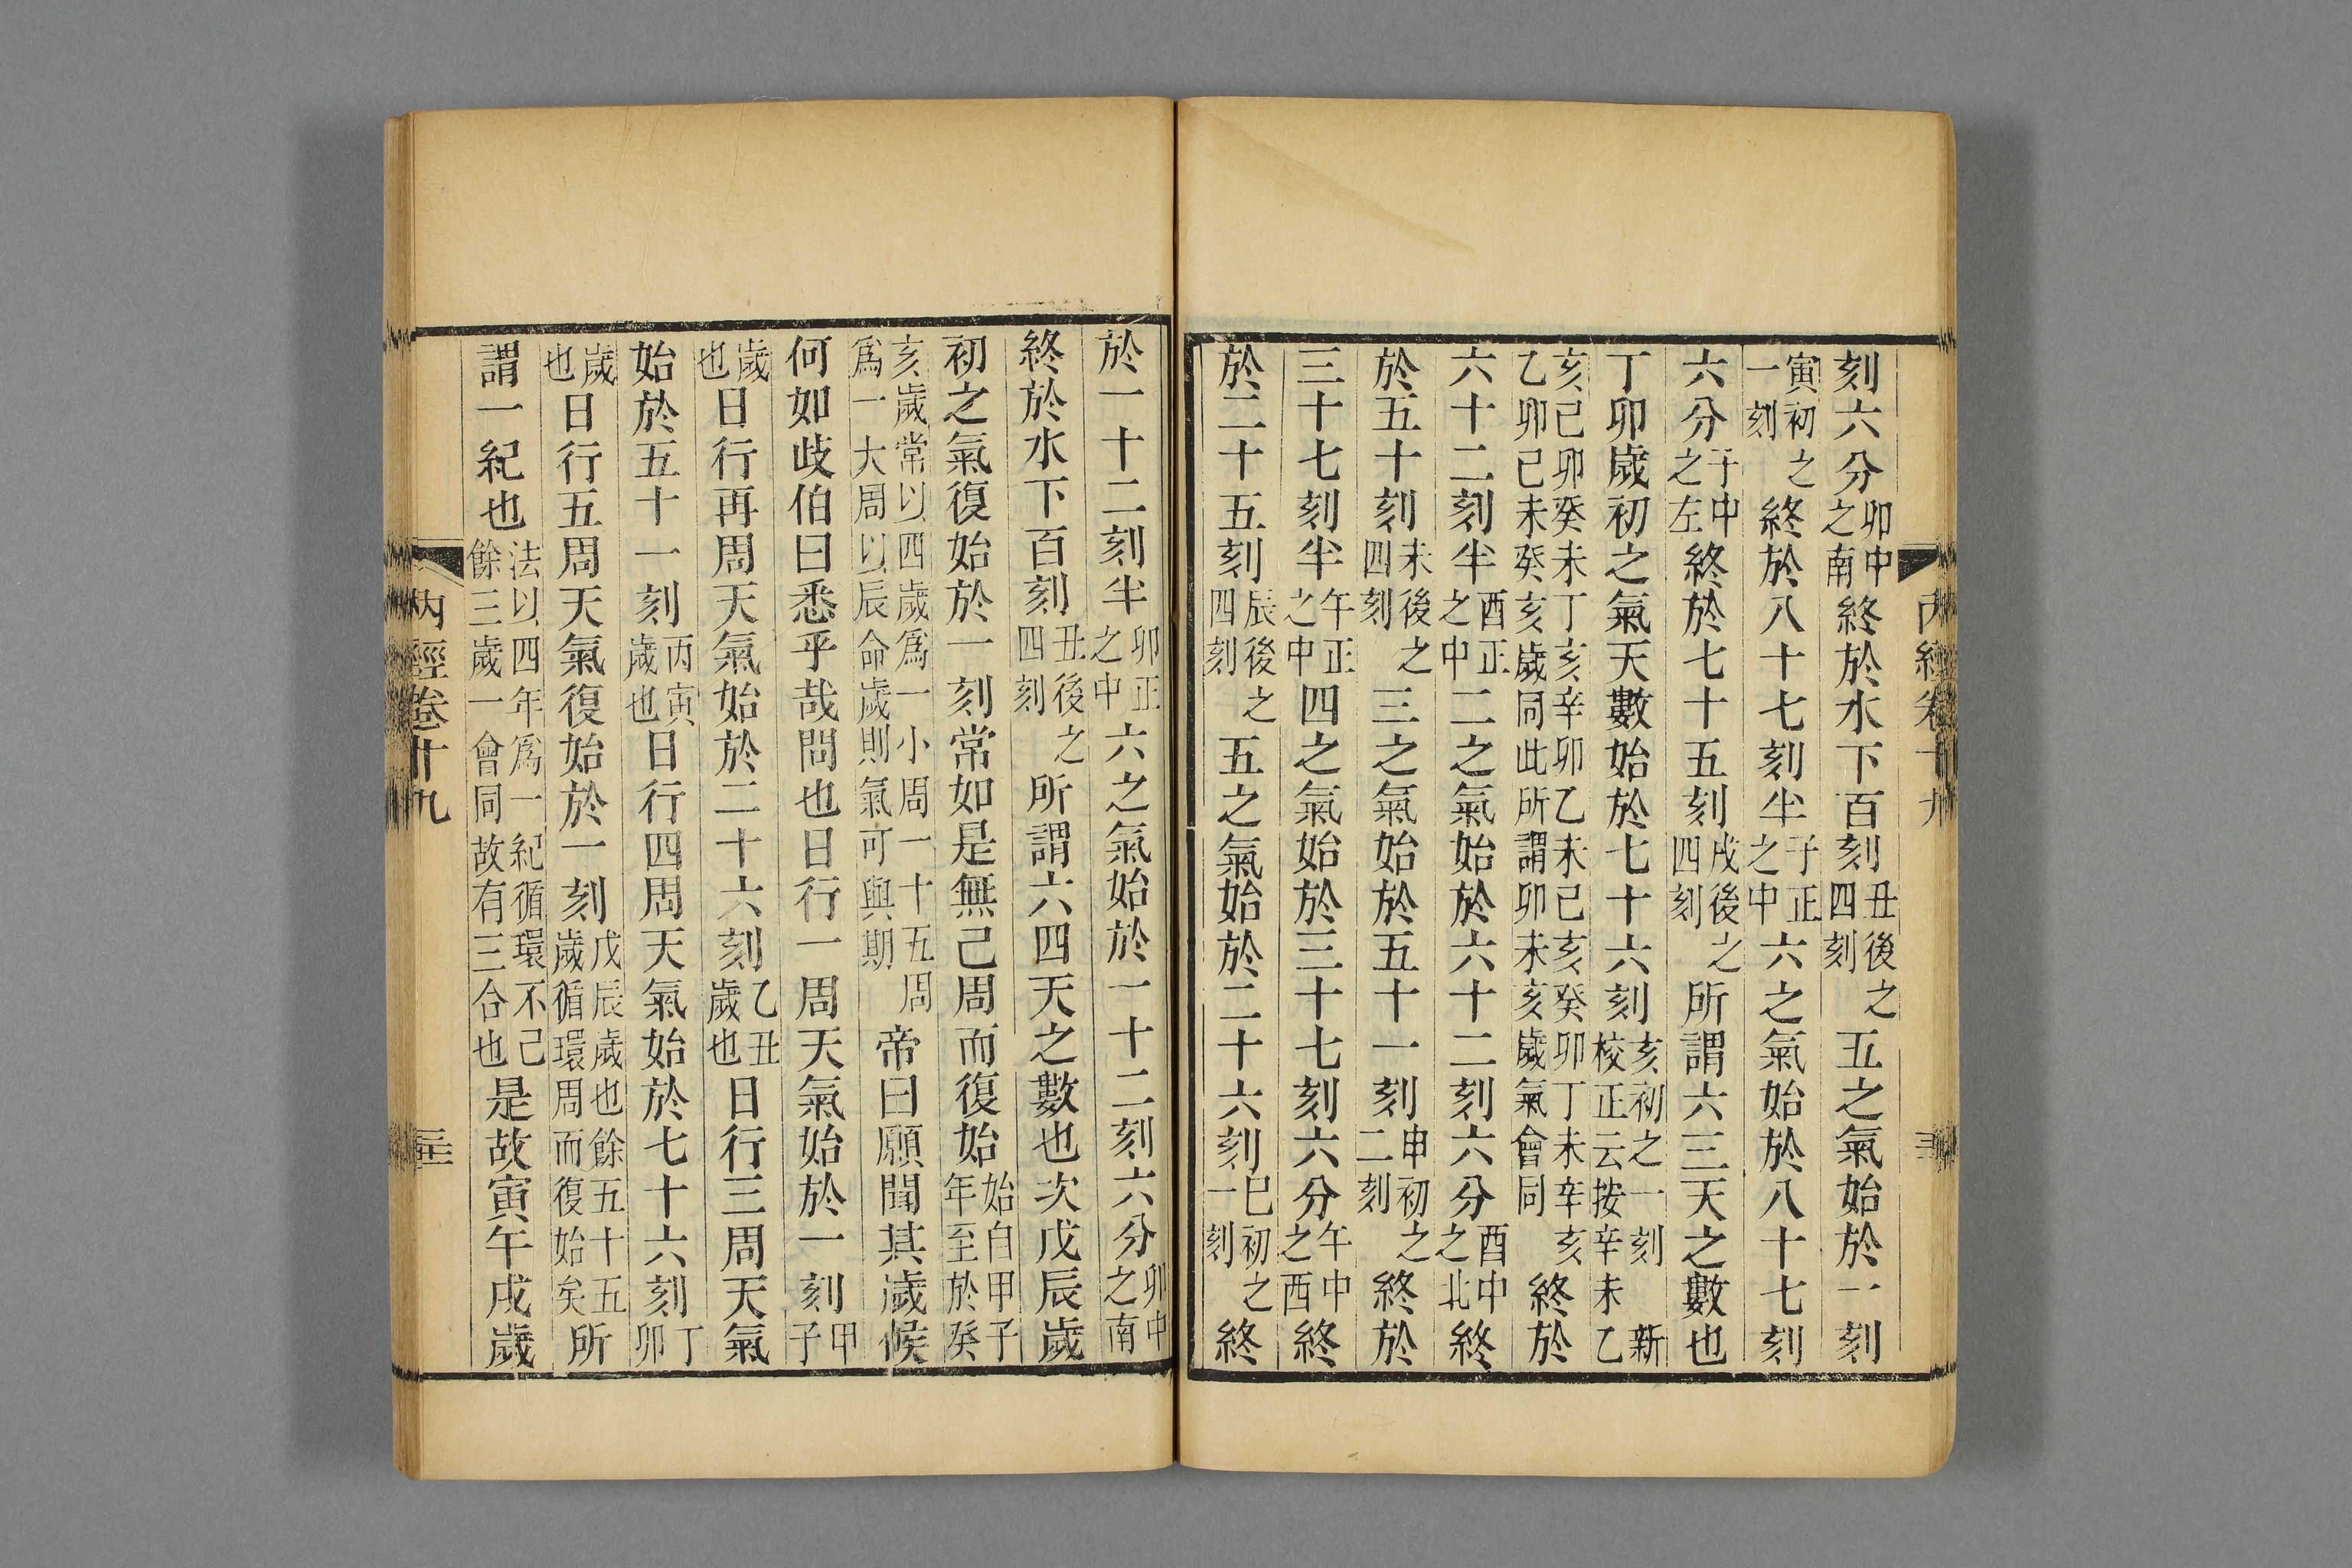 刻六分卯中之南終於水下百刻丑後之四刻五之氣始於一刻
寅初之一刻終於八十七刻半子正之中六之氣始於八十七刻
六分子中之左終於七十五刻戌後之四刻所謂六三天之數也
丁卯歲初之氣天數始於七十六刻亥初之一刻 新校正云按辛未乙
亥己卯癸未丁亥辛卯乙未己亥癸卯丁未辛亥乙卯己未癸亥歲同此所謂卯未亥歲氣會同終於
六十二刻半酉正之中二之氣始於六十二刻六分酉中之北終
於五十刻未後之四刻三之氣始於五十一刻申初之二刻終於
三十七刻半午正之中四之氣始於三十七刻六分午中之西終
於二十五刻辰後之四刻五之氣始於二十六刻巳初之一刻終
於一十二刻半卯正之中六之氣始於一十二刻六分卯中之南
終於水下百刻丑後之四刻所謂六四天之數也次戊辰歲
初之氣復始於一刻常如是無已周而復始始自甲子年至於癸
亥歲常以四歲爲一小周一十五周爲一大周以辰命歲則氣可與期帝曰願聞其歲候
何如歧伯曰悉乎哉問也日行一周天氣始於一刻甲子
歲也日行再周天氣始於二十六刻乙丑歲也日行三周天氣
始於五十一刻丙寅歲也日行四周天氣始於七十六刻丁卯
歲也日行五周天氣復始於一刻戊辰歲也餘五十五歲循環周而復始矣所
謂一紀也法以四年爲一紀循環不已餘三歲一會同故有三合也是故寅午戌歲
內經卷十九